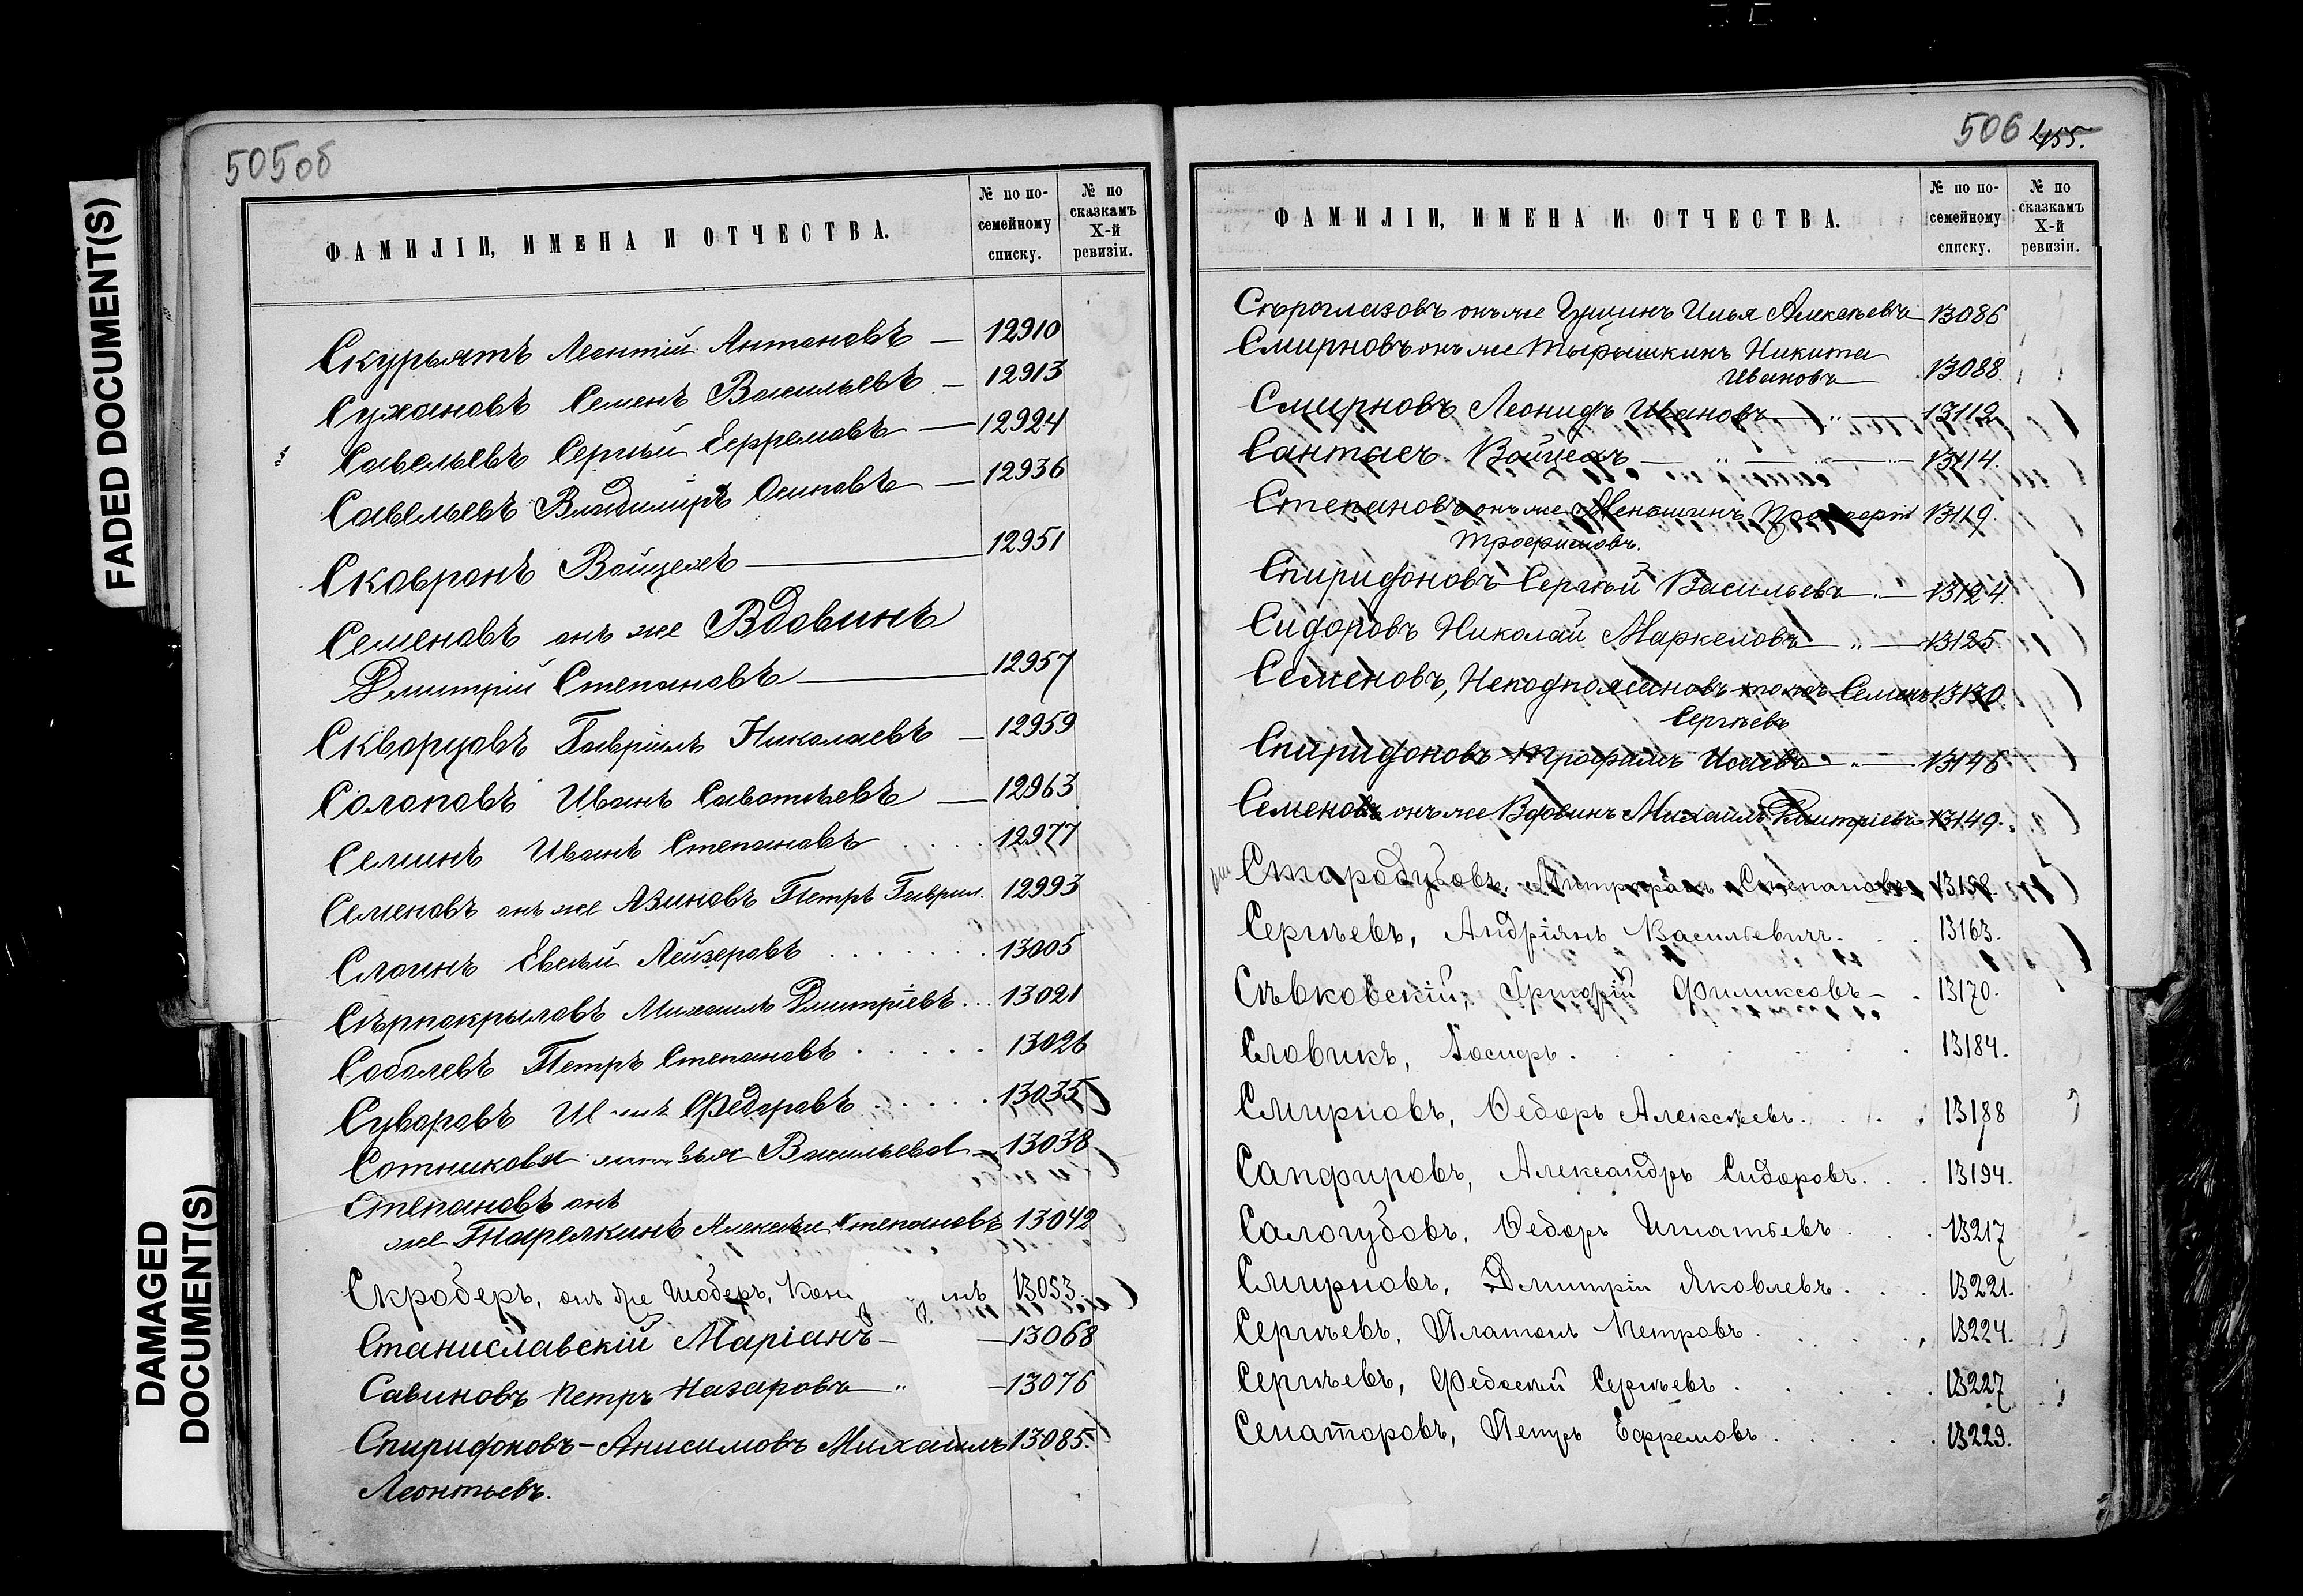 FADED DOCUMENT(S)
DAMAGED
DOCUMENT(S)
505об
ФАМИЛІИ, ИМЕНА И ОТЧЕСТВА.
№ по по-
семейному
списку.
№ по
сказкамъ
X-й
ревизіи.
Скурьятъ Леонтій Антоновъ — 12910
Сухановъ Семенъ Васильевъ — 12913
Савельевъ Сергѣй Ефремовъ — 12924
Савельевъ Владимиръ Осиповъ — 12936
Сковронъ Войцехъ — 12951
Семеновъ онъ же Вдовинъ
Дмитрій Степановъ — 12957
Скворцовъ Гавріилъ Николаевъ — 12959
Солоповъ Иванъ Саватѣевъ — 12963
Семинъ Иванъ Степановъ . . . . 12977
Семеновъ онъ же Азиновъ Петръ Гаврил. 12993
Слоинъ Евсѣй Лейзеровъ . . . . . . . 13005
Сѣрпокрыловъ Михаилъ Дмитріевъ . . . 13021
Соболевъ Петръ Степановъ . . . . . 13026
Суворовъ Федоровъ . . . . . 13035
Сотникова Васильева — 13038
Степановъ онъ
же Тарелкинъ Алексѣй Степановъ 13042
Скроберъ, онъ же Шоберъ, 13053
Станиславскій Маріанъ — 13068
Савиновъ Петръ Назаровъ — " — 13076
Спиридоновъ-Анисимовъ Михаилъ 13085.
Леонтьевъ.
506 455.
ФАМИЛІИ, ИМЕНА И ОТЧЕСТВА.
№ по по-
семейному
списку.
№ по
сказкамъ
X-й
ревизіи.
Сѣроглазовъ онъ же Гущинъ Илья Алексѣевъ 13086
Смирновъ онъ же Тырышкинъ Никита
Ивановъ — 13088.
Смирновъ Леонидъ Ивановъ — " — 13112
Сантаеъ Войцехъ — " — " — 13114.
Степановъ онъ же Меношинъ 13119.
Трофимовъ.
Спиридоновъ Сергѣй Васильевъ — " — 13124.
Сидоровъ Николай Маркеловъ — " — 13125.
Семеновъ, Неподпоясановъ тожъ Семенъ 13130
Сергѣевъ
Спиридоновъ Трофимъ Исаевъ — " — 13146.
Семеновъ онъ же Вдовинъ Михаилъ Дмитріевъ 13149.
Стародубовъ, Митрофанъ Степановъ 13158.
Сергѣевъ, Андріянъ Васильевичъ . . 13163.
Сѣвковскій, Григорій Филиксовъ — . 13170.
Словикъ, Іосифъ . . . . . . . 13184.
Смирновъ, Ѳедоръ Алексѣевъ . . . . 13188
Сапфировъ, Александръ Сидоровъ . . . 13194.
Сологубовъ, Ѳедоръ Игнатьевъ . . . 13217
Смирновъ, Дмитрій Яковлевъ . . . 13221.
Сергѣевъ, Платонъ Петровъ . . . . . 13224.
Сергѣевъ, Федосѣй Сергѣевъ . . . . . 13227
Сенаторовъ, Петръ Ефремовъ . . . . . 13229.